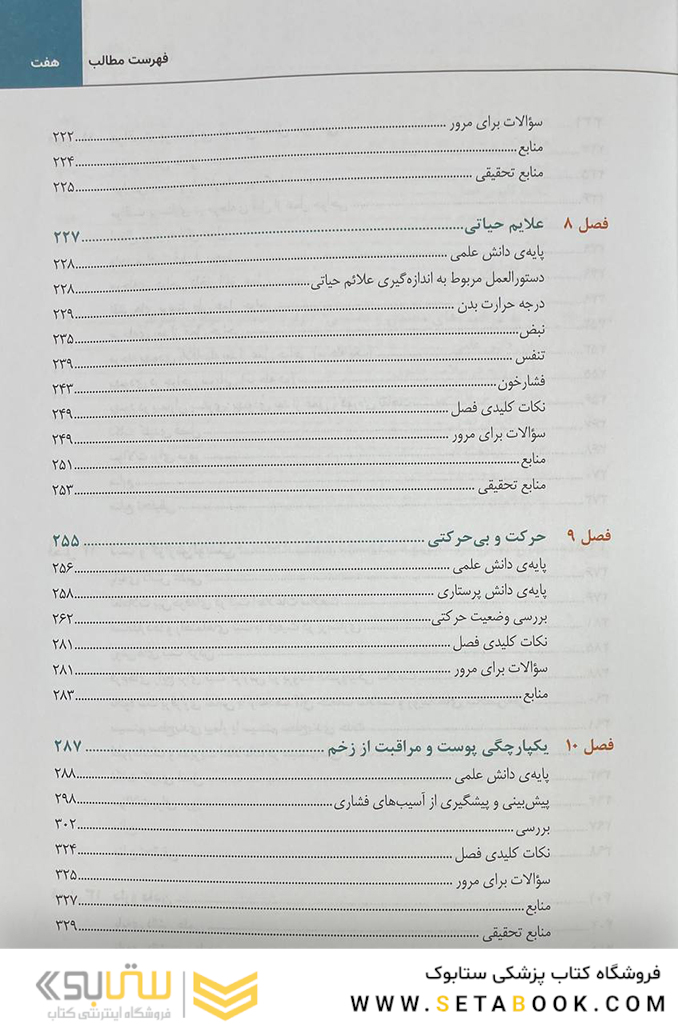 فهرست مطالب هفت
سؤالات برای مرور ۲۲۲
منابع ۲۲۴
منابع تحقیقی ۲۲۵
فصل ۸ علایم حیاتی ۲۲۷
پایه‌ی دانش علمی ۲۲۸
دستورالعمل مربوط به اندازه‌گیری علائم حیاتی ۲۲۸
درجه حرارت بدن ۲۲۹
نبض ۲۳۵
تنفس ۲۳۹
فشارخون ۲۴۳
نکات کلیدی فصل ۲۴۹
سؤالات برای مرور ۲۴۹
منابع ۲۵۱
منابع تحقیقی ۲۵۳
فصل ۹ حرکت و بی‌حرکتی ۲۵۵
پایه‌ی دانش علمی ۲۵۶
پایه‌ی دانش پرستاری ۲۵۸
بررسی وضعیت حرکتی ۲۶۲
نکات کلیدی فصل ۲۸۱
سؤالات برای مرور ۲۸۱
منابع ۲۸۳
فصل ۱۰ یکپارچگی پوست و مراقبت از زخم ۲۸۷
پایه‌ی دانش علمی ۲۸۸
پیش‌بینی و پیشگیری از آسیب‌های فشاری ۲۹۸
بررسی ۳۰۲
نکات کلیدی فصل ۳۲۴
سؤالات برای مرور ۳۲۵
منابع ۳۲۷
منابع تحقیقی ۳۲۹
فروشگاه کتاب پزشکی ستابوک
WWW.SETABOOK.COM
ستابوک
فروشگاه اینترنتی کتاب